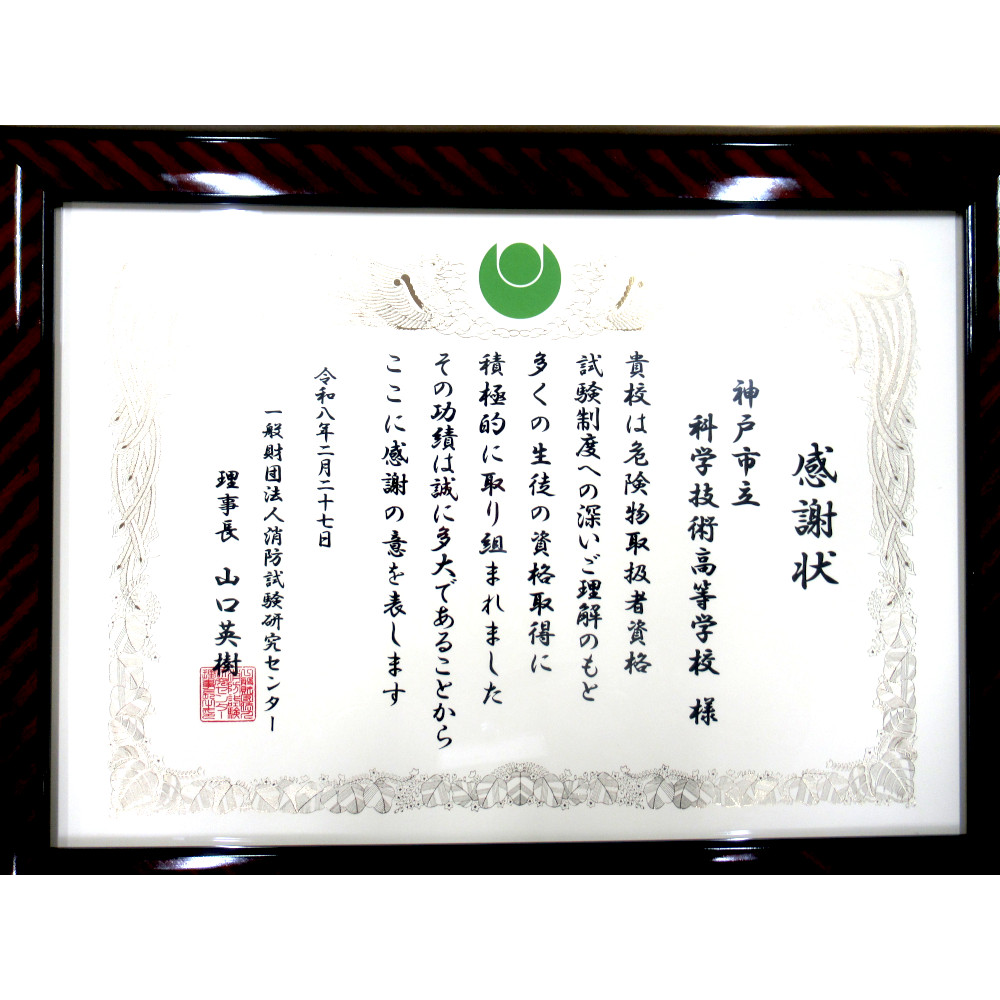 感謝状
神戸市立
科学技術高等学校 様
貴校は危険物取扱者資格
試験制度への深いご理解のもと
多くの生徒の資格取得に
積極的に取り組まれました
その功績は誠に多大であることから
ここに感謝の意を表します
令和八年二月二十七日
一般財団法人消防試験研究センター
理事長 山口英樹